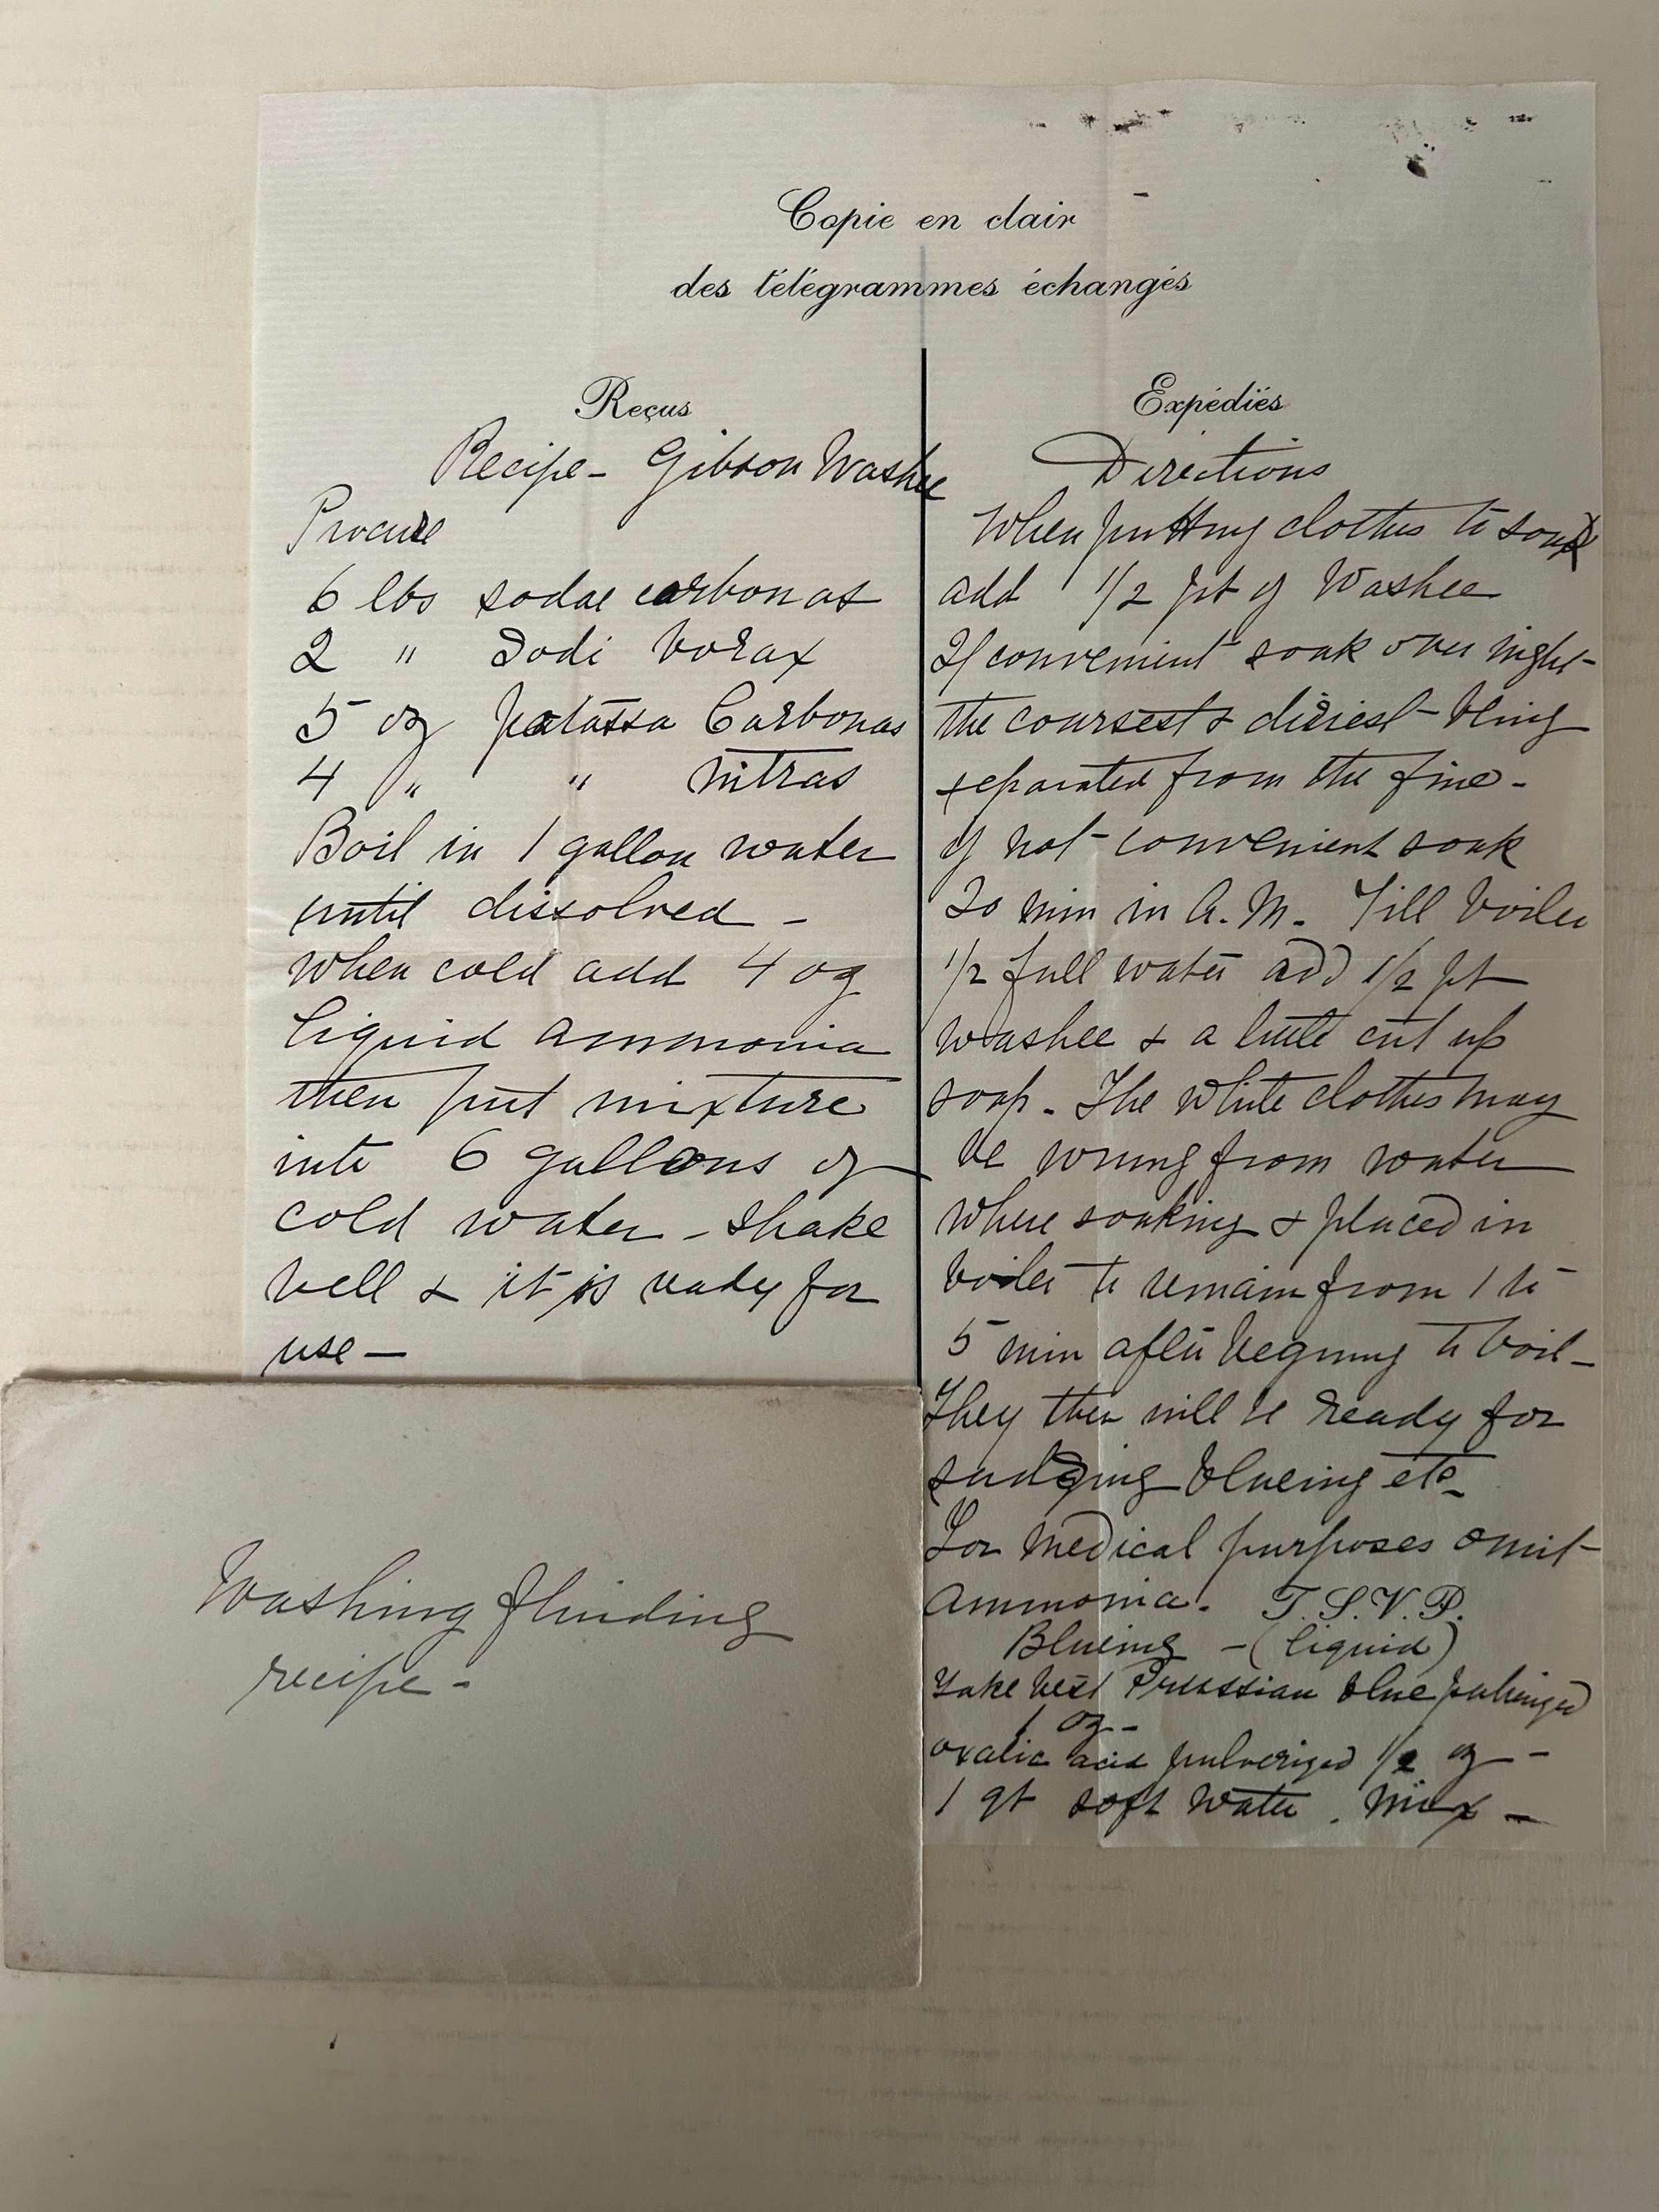 Copie en clair
des télégrammes échangés
Reçus
Recipe - Gibson Washee
Procure
6 lbs sodae carbonas
2 " Sodi borax
5 oz potassa Carbonas
4 " " nitras
Boil in 1 gallon water
until dissolved -
when cold add 4 oz
liquid ammonia
then put mixture
into 6 gallons of
cold water - shake
well & it is ready for
use -
Expédiés
Directions
When putting clothes to soak
add 1/2 pt of Washee
If convenient soak over night -
the coursest & dirtiest - being
separated from the fine -
if not convenient soak
20 min in A.M. Fill boiler
1/2 full water add 1/2 pt
washee & a little cut up
soap - The white clothes may
be wrung from water
where soaking & placed in
boiler to remain from 1 to
5 min after begining to boil -
They then will be ready for
sudsing blueing etc -
For medical purposes omit
Ammonia. T.S.V.P.
Blueing - (liquid)
Take best Prussian blue pulverized
1 oz -
oxalic acid pulverized 1/2 oz -
1 qt soft water. Mix -
Washing
recipe -